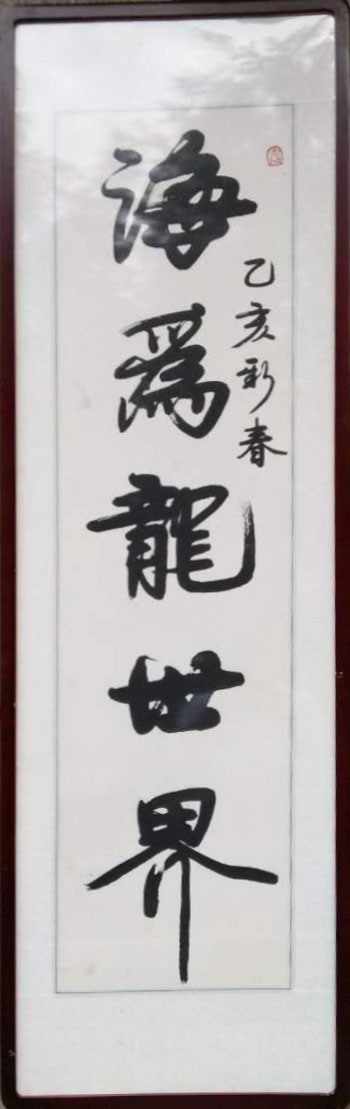 乙亥新春
海為龍世界